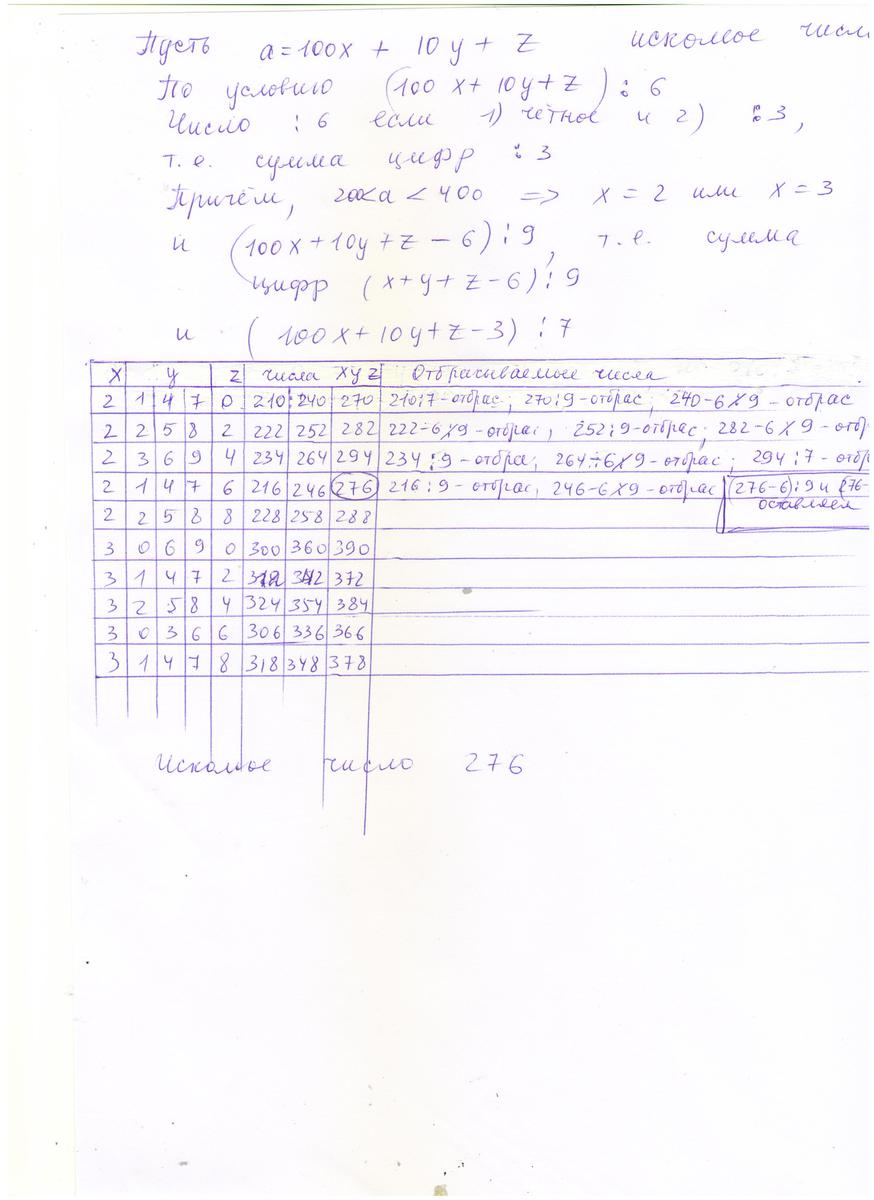 Пусть a=100x + 10y + z искомое числ
По условию (100 x + 10y + z) ⋮ 6
Число ⋮ 6 если 1) чётное и 2) ⋮ 3,
т. е. сумма цифр ⋮ 3
Причём, 200<a < 400 => x = 2 или x = 3
и (100x+10y+z – 6) ⋮ 9, т.е. сумма
цифр (x+y+z-6) ⋮ 9
и (100x+10y+z-3) ⋮ 7
x y z числа xyz Отбрасываемые числа
2 1 4 7 0 210 240 270 210⋮7-отбрас, 270⋮9-отбрас, 240-6⋮̸9-отбрас
2 2 5 8 2 222 252 282 222-6⋮̸9-отбрас, 252⋮9-отбрас, 282-6⋮̸9-отб
2 3 6 9 4 234 264 294 234⋮9-отбра, 264-6⋮̸9-отбрас, 294⋮7-отб
2 1 4 7 6 216 246 276 216⋮9-отбрас, 246-6⋮̸9-отбрас (276-6)⋮9 и (276-
оставляем
2 2 5 8 8 228 258 288
3 0 6 9 0 300 360 390
3 1 4 7 2 312 342 372
3 2 5 8 4 324 354 384
3 0 3 6 6 306 336 366
3 1 4 7 8 318 348 378
Искомое число 276